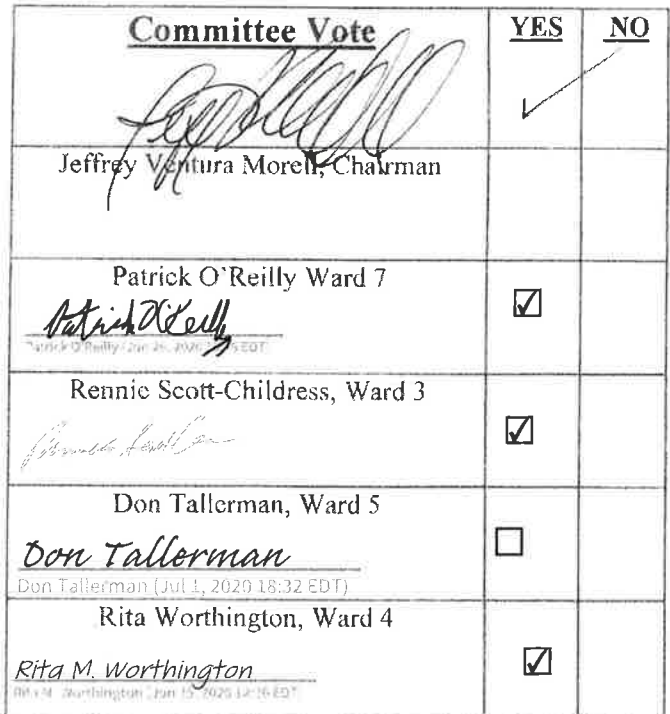 Committee Vote YES NO
Jeffrey Ventura Morell, Chairman
Patrick O`Reilly Ward 7
Patrick O'Reilly
Patrick O'Reilly Jun 2020 EDT
Rennie Scott-Childress, Ward 3
Don Tallerman, Ward 5
Don Tallerman
Don Tallerman (Jul 1, 2020 18:32 EDT)
Rita Worthington, Ward 4
Rita M. Worthington
Rita M. Worthington Jun 15, 2020 EDT